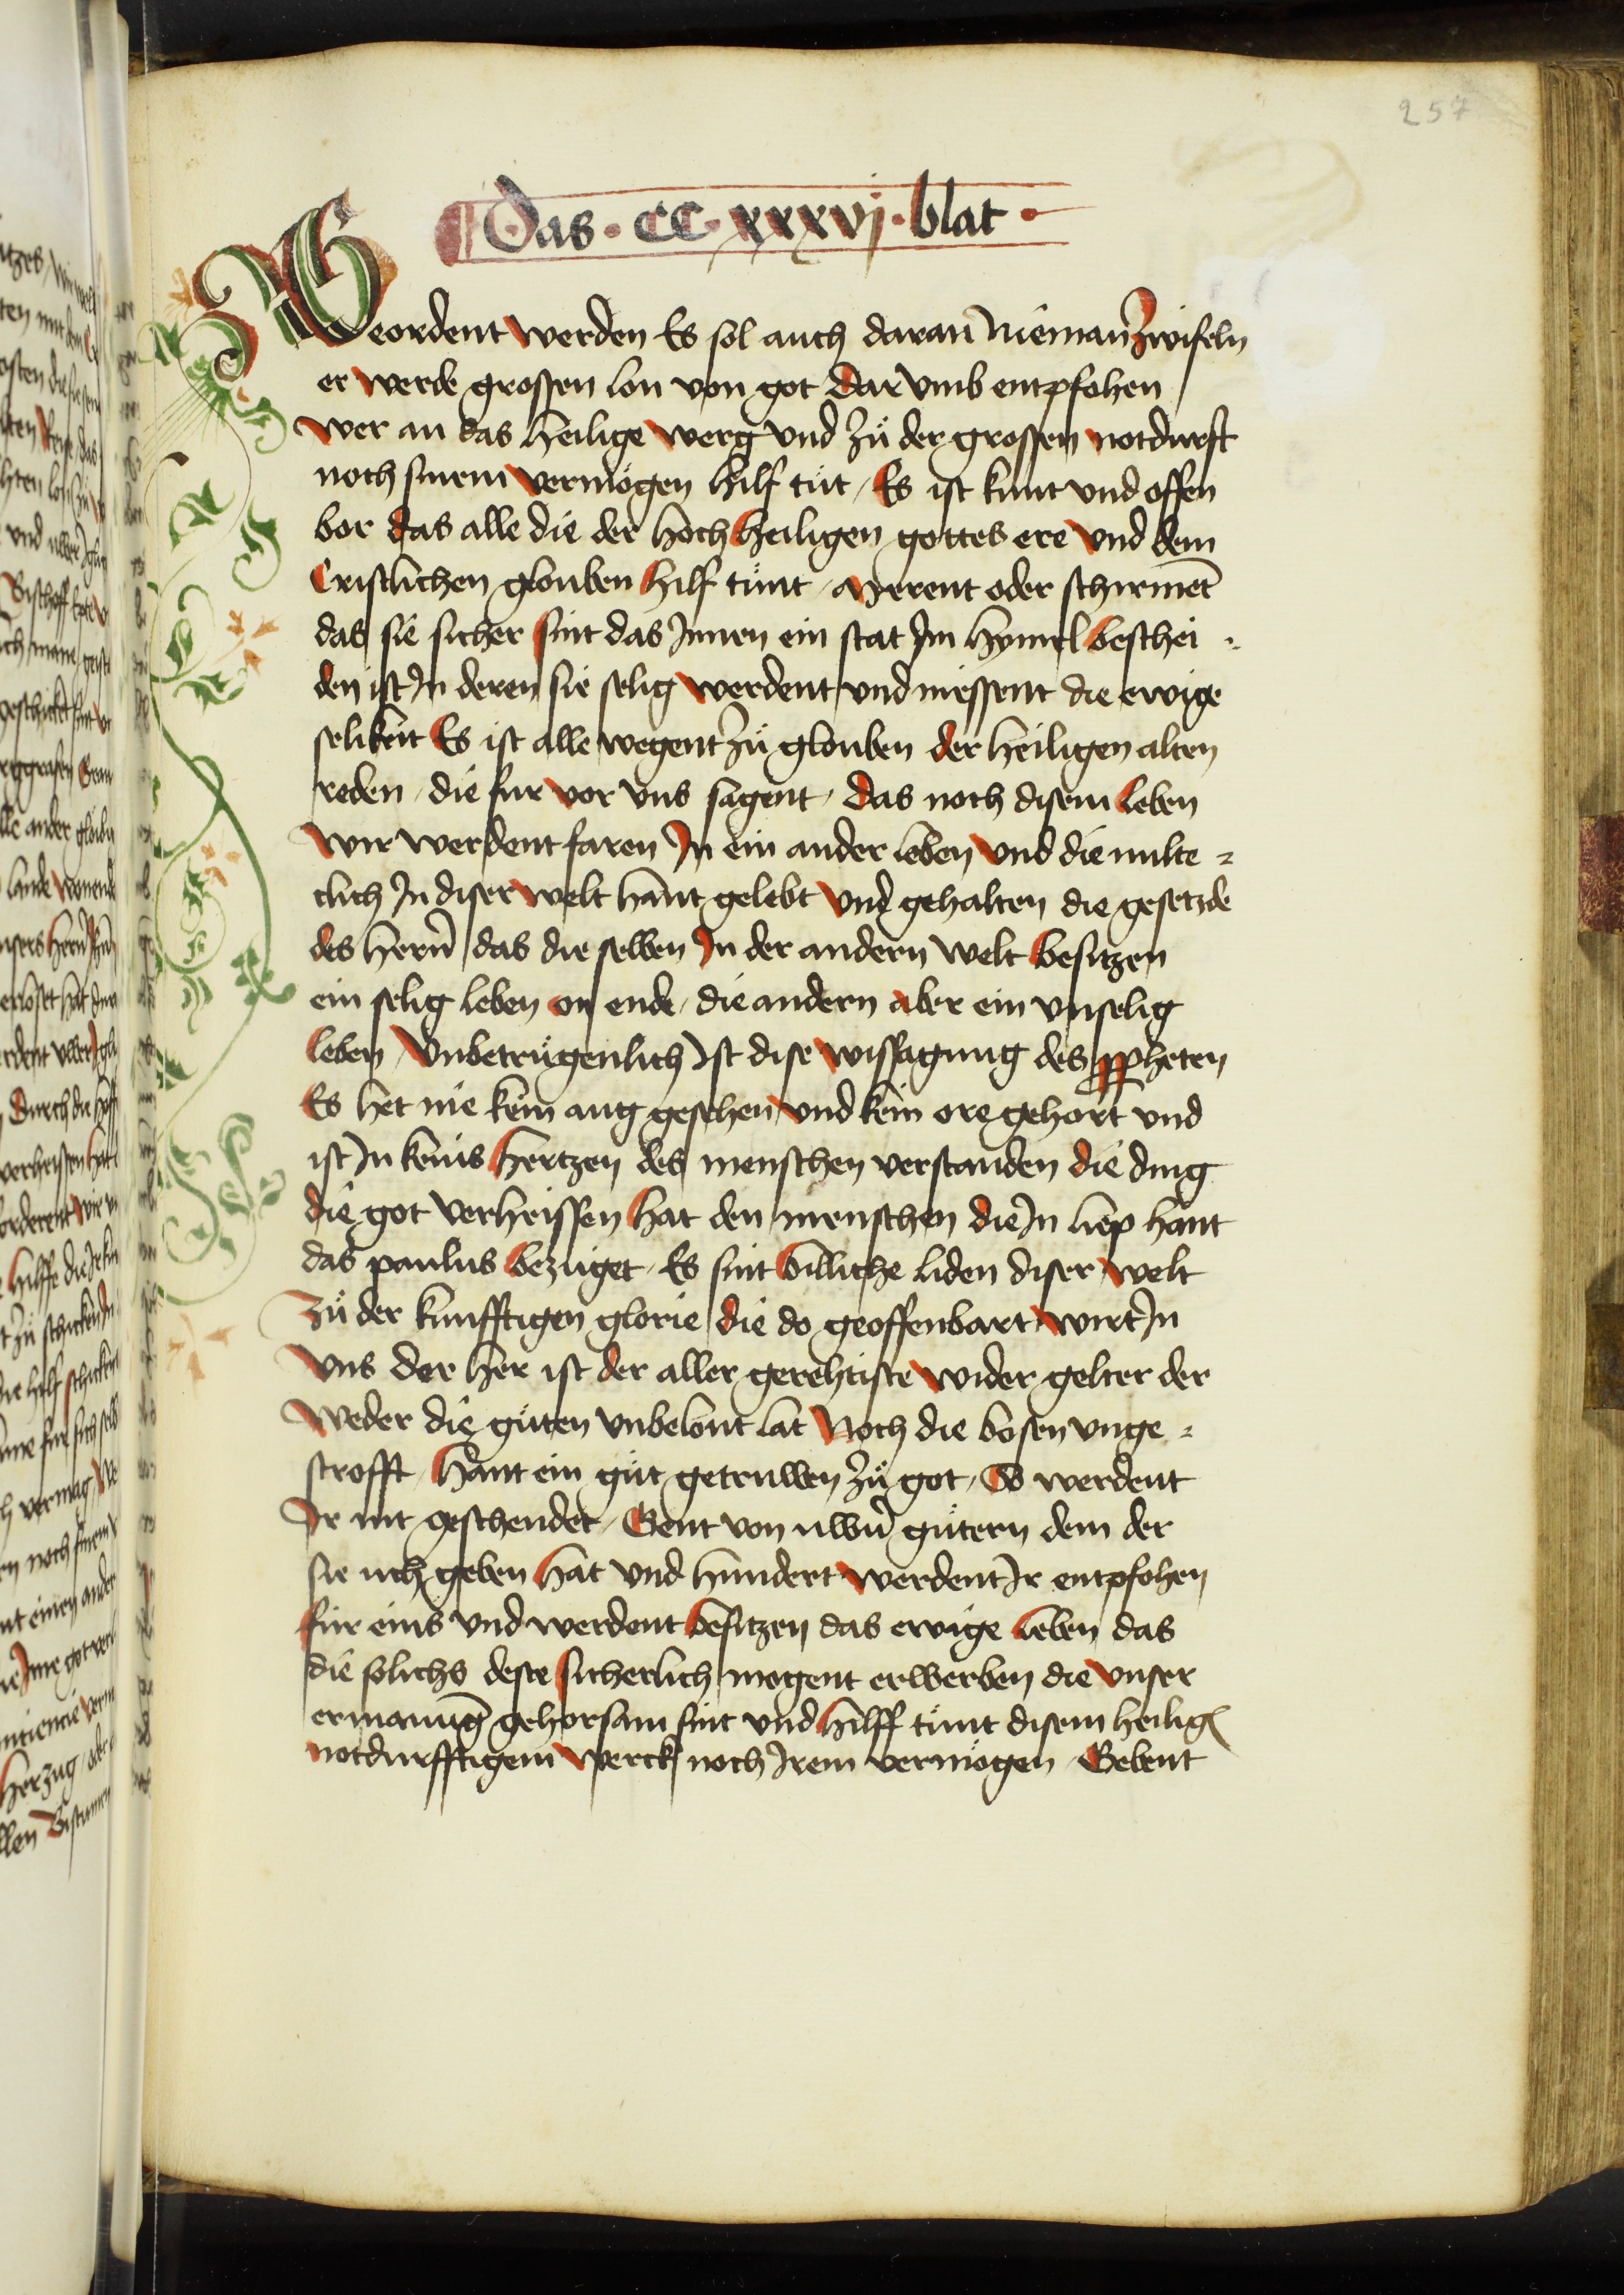 257
Das · CC · xxxvj · blat ·
Geordent werden Es sol auch daran̄ Nieman̄ zwifeln
er werde grossen lon von got Dar vmb entpfohen
wer an das heilige werg vnd zů der grossen notdurft
noch sinem vermögen hilf tůt / Es ist kunt vnd offen
bor das alle die der hoch heiligen gottes ere vnd dem
Cristlichen glouben hilf tůnt / Merent oder schirment̄
das sie sicher sint das Innen ein stat Im hymel beschei =
den ist In deren sie selig werdent vnd niessent die ewige
selikeit Es ist alle wegent zů glouben der heiligen alten
reden / die fur vor vns sagent / das noch disem leben
wir werdent faren In ein ander leben vnd die milte =
clich In diser welt hant gelebt vnd gehalten die gesetzde
des hern̄ das die selben In der andern welt besitzen
ein selig leben on ende / die andern aber ein vnselig
leben / Vnbetrůgenlich Ist dise wissagung des ppheten
Es het nie kein aug gesehen vnd kein ore gehört vnd
ist In keins hertzen des menschen verstanden die ding
die got verheissen hat den menschen die In liep hant
das paulus bezuget / Es sint billiche liden diser welt
zů der kunfftigen glorie die do geoffenbart wirt In
vns der her ist der aller gerehtiste wider gelter der
weder die gůten vnbelont lat Noch die bosen vnge =
strofft / hant ein gůt getruwen zů got / So werdent
Ir nit geschendet / Gent von uwern̄ gůtern dem der
sie uch geben hat vnd hundert werdent Ir entpfohen
für eins vnd werdent besitzen das ewige leben das
die solichs deste sicherlich mogent erwerben die vnser
ermanunḡ gehorsam sint vnd hilff tůnt disem heilig
notdurfftigem werck noch Irem vermögen / Gebent